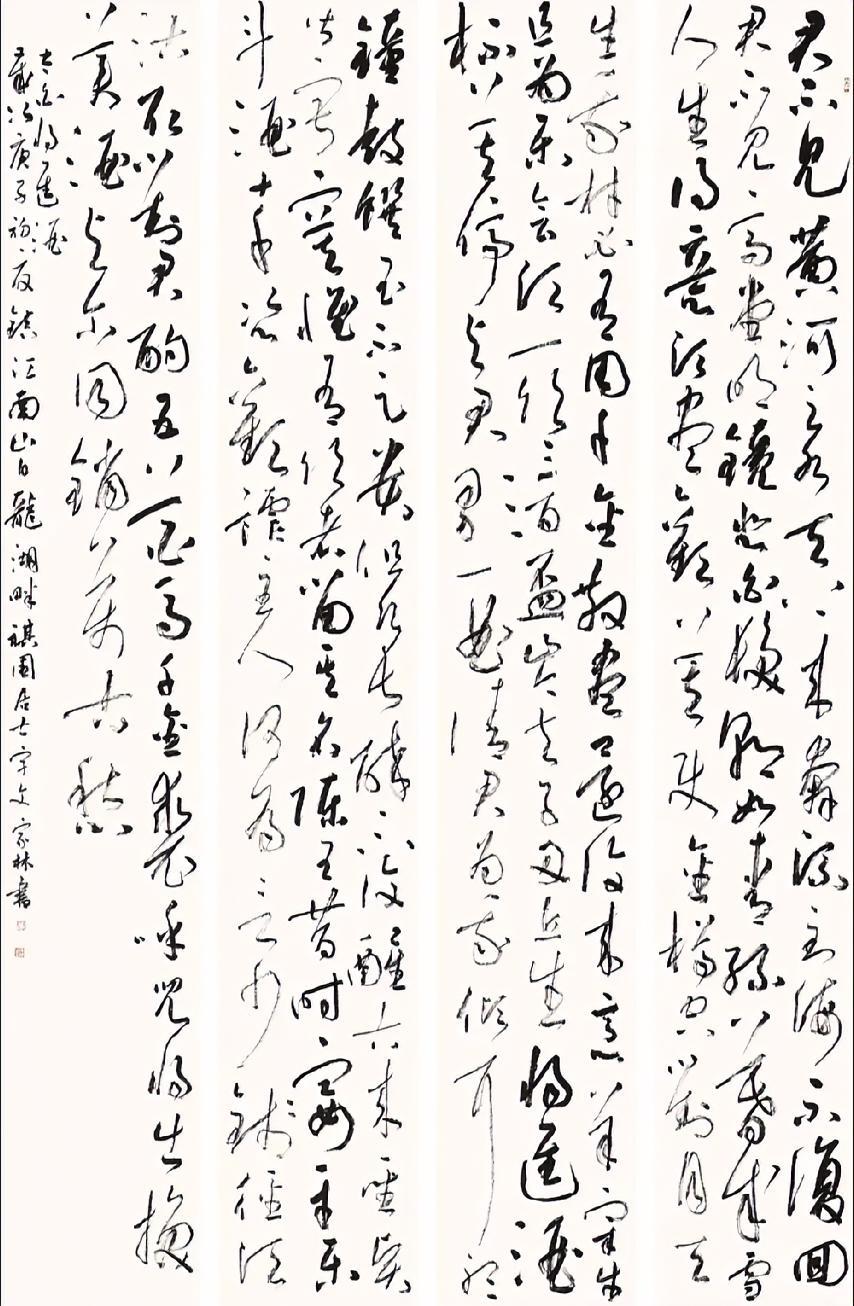 君不見黃河之水天上來奔流到海不復回
君不見高堂明鏡悲白髮朝如青絲暮成雪
人生得意須盡歡莫使金樽空對月天
生我材必有用千金散盡還復來烹羊宰牛
且為樂會須一飲三百杯岑夫子丹丘生將進酒
杯莫停與君歌一曲請君為我傾耳聽
鐘鼓饌玉不足貴但願長醉不復醒古來聖賢
皆寂寞惟有飲者留其名陳王昔時宴平樂
斗酒十千恣歡謔主人何為言少錢徑須
沽取對君酌五花馬千金裘呼兒將出換
美酒與爾同銷萬古愁
太白將進酒
歲次庚子初夏鎮江南山白龍湖畔祺園居士宇文家林書